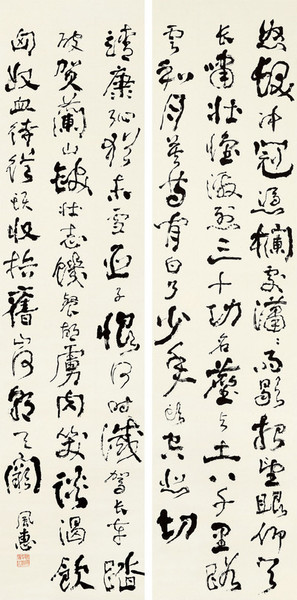 怒髮冲冠憑欄處瀟瀟雨歇抬望眼仰天
長嘯壯懷激烈三十功名塵与土八千里路
雲和月莫等閑白了少年頭空悲切
靖康恥猶未雪臣子恨何時滅駕長車踏
破賀蘭山缺壯志饑餐胡虜肉笑談渴飲
匈奴血待從頭收拾舊山河朝天闕
風惠